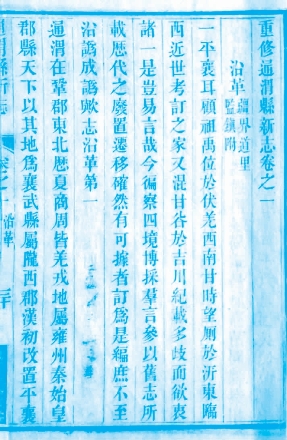 重修通渭縣新志卷之一
沿革 疆界道里
監鎮附
一平襄耳顧祖禹位於伏羌西南甘時望厠於沂東臨
西近世考訂之家又混甘谷於吉川紀載多歧而欲衷
諸一是豈易言哉今徧察四境博採羣言參以舊志所
載歷代之廢置遷移確然有可據者訂爲是編庶不至
沿譌成譌歟志沿革第一
通渭在鞏郡東北歷夏商周皆羌戎地屬雍州秦始皇
郡縣天下以其地爲襄武縣屬隴西郡漢初改置平襄
通渭縣新志
卷之一
沿革